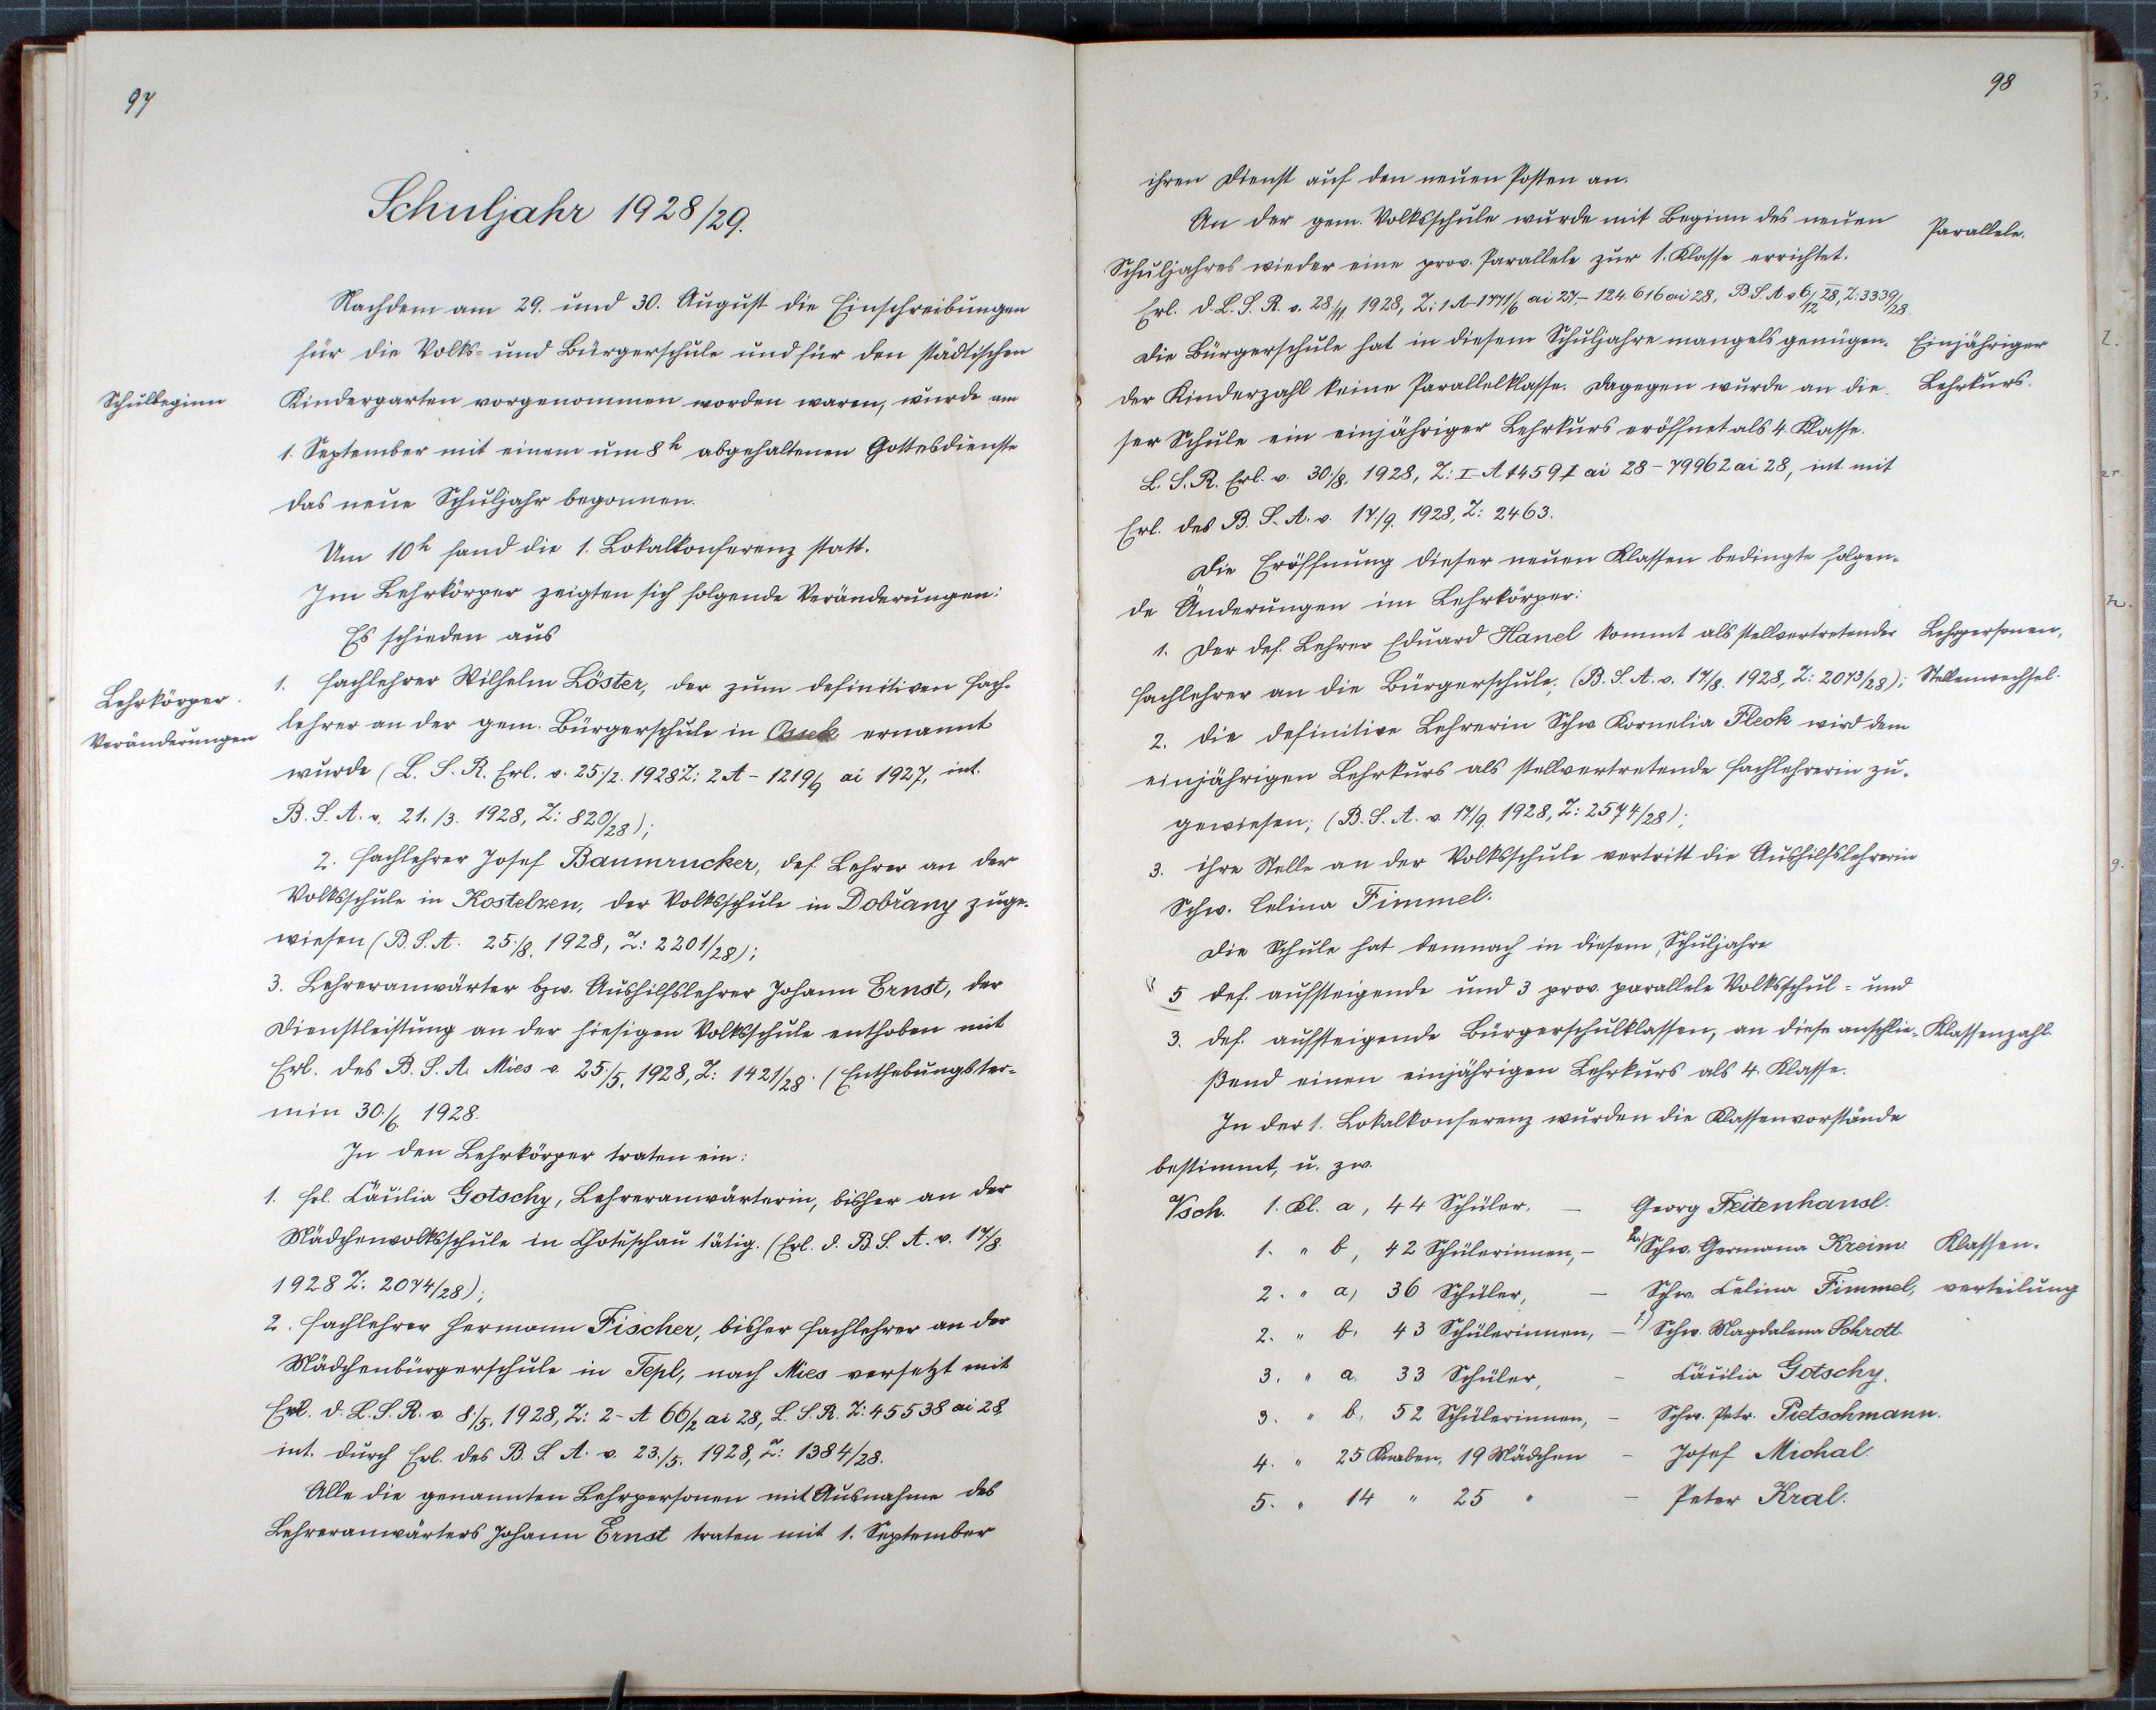 97
Schuljahr 1928/29.
Nachdem am 29. und 30. August die Einschreibungen
für die Volks- und Bürgerschule und für den städtischen
Schulbeginn
Kindergarten vorgenommen worden waren, wurde am
1. September mit einem um 8h abgehaltenen Gottesdienste
das neue Schuljahr begonnen.
Um 10h fand die 1. Lokalkonferenz statt.
Im Lehrkörper zeigten sich folgende Veränderungen:
Es schieden aus
Lehrkörper.
Veränderungen
1. Fachlehrer Wilhelm Löster, der zum definitiven Fach-
lehrer an der gem. Bürgerschule in Ossek ernannt
wurde (L. S. R. Erl. v. 25./2. 1928 Z: 2 A - 1219/9 ai 1927, int.
B. S. A. v. 21./3. 1928, Z: 820/28);
2. Fachlehrer Josef Baumrucker, def. Lehrer an der
Volksschule in Kostelzen, der Volksschule in Dobřany zuge-
wiesen (B. S. A. 25./8. 1928, Z: 2201/28);
3. Lehreranwärter bzw. Aushilfslehrer Johann Ernst, der
Dienstleistung an der hiesigen Volksschule enthoben mit
Erl. des B. S. A. Mies v. 25./5. 1928, Z: 1421/28. (Enthebungster-
min 30./6. 1928.
In den Lehrkörper traten ein:
1. Frl. Cäcilia Gotschy, Lehreranwärterin, bisher an der
Mädchenvolksschule in Chotieschau tätig. (Erl. d. B. S. A. v. 17/8.
1928 Z: 2074/28);
2. Fachlehrer Hermann Fischer, bisher Fachlehrer an der
Mädchenbürgerschule in Tepl, nach Mies versetzt mit
Erl. d. L. S. R. v. 8./5. 1928, Z: 2 - A 66/2 ai 28, L. S. R. Z: 45538 ai 28,
int. durch Erl. des B. S. A. v. 23./5. 1928, Z: 1384/28.
Alle die genannten Lehrpersonen mit Ausnahme des
Lehreranwärters Johann Ernst traten mit 1. September
98
ihren Dienst auf den neuen Posten an.
An der gem. Volksschule wurde mit Beginn des neuen
Parallele.
Schuljahres wieder eine prov. Parallele zur 1. Klasse errichtet.
Erl. d. L. S. R. v. 28./11. 1928, Z: 1 A - 1771/6 ai 27 - 124.616 ai 28, B. S. A. v. 6/12 28, Z: 3339/28.
Die Bürgerschule hat in diesem Schuljahre mangels genügen-
Einjähriger
der Kinderzahl keine Parallelklasse. Dagegen wurde an die-
Lehrkurs.
ser Schule ein einjähriger Lehrkurs eröffnet als 4. Klasse.
L. S. R. Erl. v. 30./8. 1928, Z: I - A 1459 I ai 28 - 79962 ai 28, int. mit
Erl. des B. S. A. v. 17./9. 1928, Z: 2463.
Die Eröffnung dieser neuen Klassen bedingte folgen-
de Änderungen im Lehrkörper:
1. Der def. Lehrer Eduard Hanel kommt als stellvertretender
Lehrpersonen,
Fachlehrer an die Bürgerschule; (B. S. A. v. 17./8. 1928, Z: 2073/28);
Stellenwechsel.
2. die definitive Lehrerin Schw. Kornelia Fleck wird dem
einjährigen Lehrkurs als stellvertretende Fachlehrerin zu-
gewiesen; (B. S. A. v. 17/9. 1928, Z: 2574/28);
3. ihre Stelle an der Volksschule vertritt die Aushilfslehrerin
Schw. Celina Fimmel.
Die Schule hat demnach in diesem Schuljahre
5 def. aufsteigende und 3 prov. parallele Volksschul- und
3. def. aufsteigende Bürgerschulklassen, an diese anschlie-
Klassenzahl.
ßend einen einjährigen Lehrkurs als 4. Klasse.
In der 1. Lokalkonferenz wurden die Klassenvorstände
bestimmt, u. zw.
Vsch. 1. Kl. a, 44 Schüler, - Georg Feitenhansl.
1. " b, 42 Schülerinnen, - 2.) Schw. Germana Kreim
Klassen-
2. " a, 36 Schüler, - Schw. Celina Fimmel,
verteilung
2. " b. 43 Schülerinnen, - 1) Schw. Magdalena Schrott
3. " a. 33 Schüler, - Cäcilia Gotschy.
3. " b. 52 Schülerinnen, - Schw. Petr. Pietschmann.
4. " 25 Knaben, 19 Mädchen - Josef Michal.
5. " 14 " 25 " - Peter Kral.